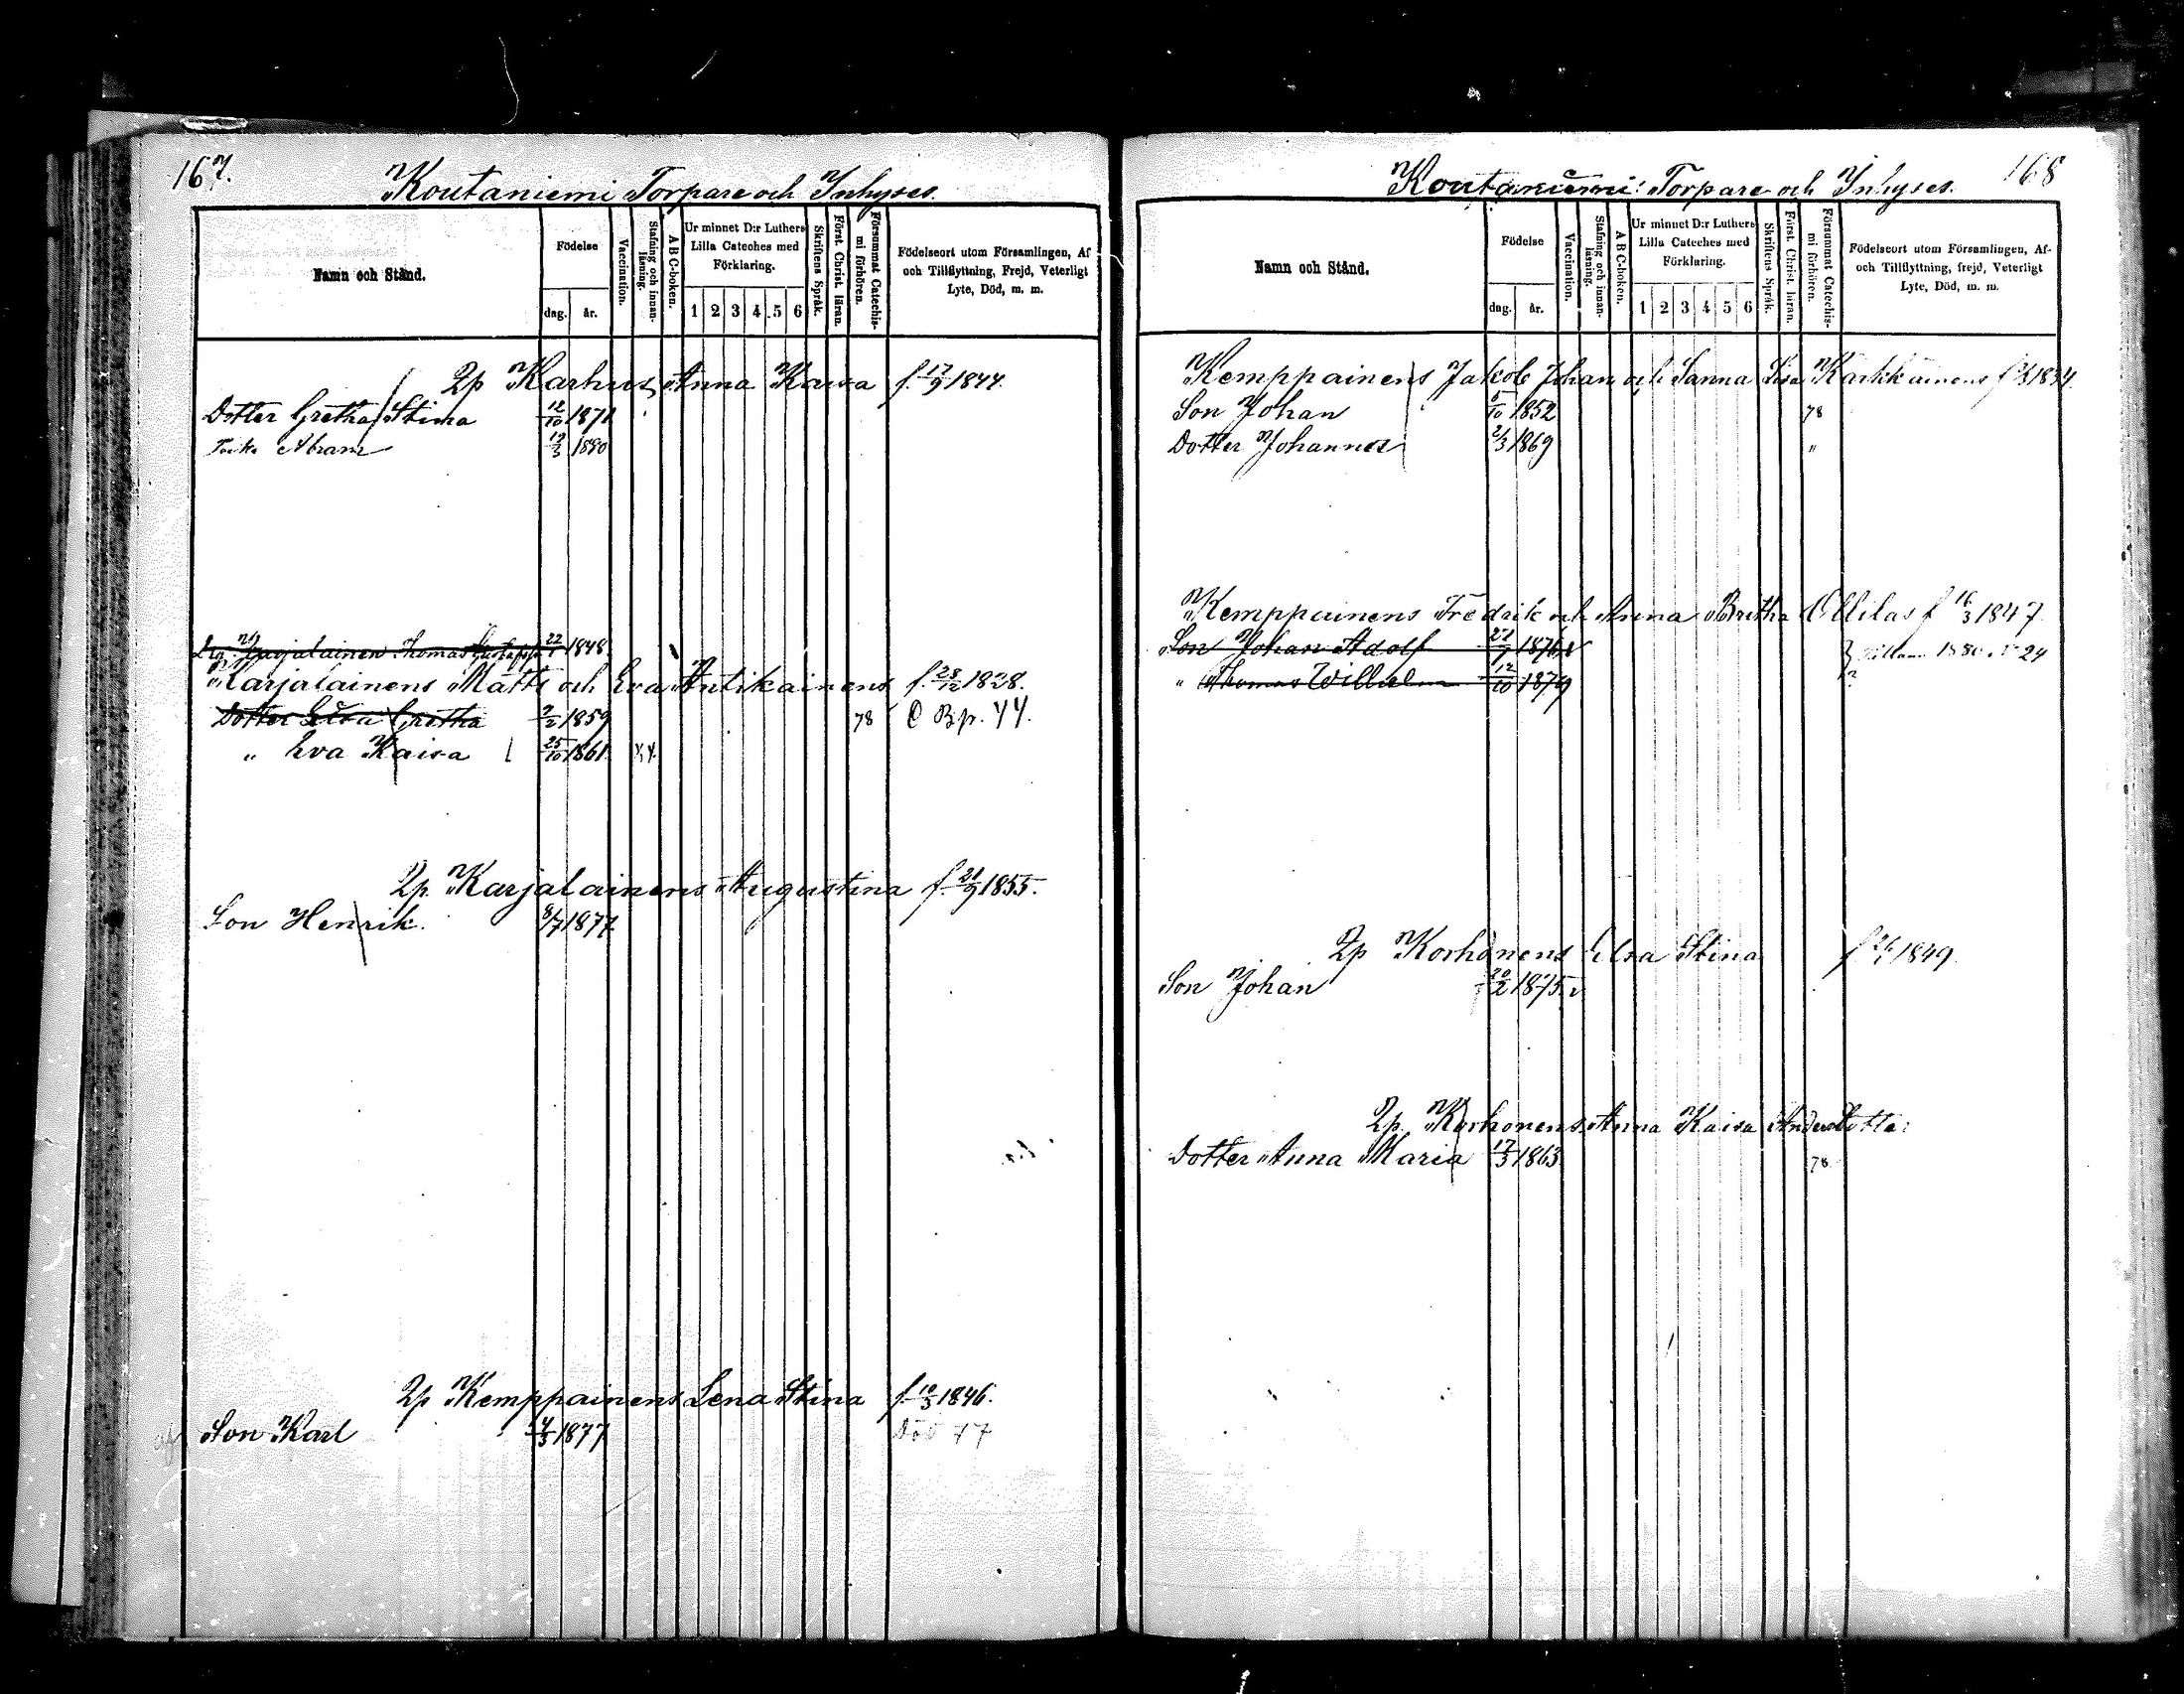 167.
Koutaniemi Torpare och Inhyses.
Namn och Stånd.
Födelse
dag. år.
Vaccination.
Stafning och innanläsning.
A B C-boken.
Ur minnet D:r Luthers Lilla Cateches med Förklaring.
1 2 3 4 5 6
Skriftens Språk.
Först. Christ. läran.
Försummat Catechismi förhören.
Födelseort utom Församlingen, Af och Tillflyttning, Frejd, Veterligt Lyte, Död, m. m.
Qp Karhus Anna Kaisa f. 17/9 1844.
Dotter Gretha Stina 12/10 1871
Abram 19/3 1880
Karjalainen Thomas 22/1 1848
Karjalainens Matts och Eva Antikainens f. 28/12 1828.
Dotter Elsa Gretha 9/2 1859 78 Bp. 44.
" Eva Kaisa 25/10 1861
Qp. Karjalainens Augustina f. 21/9 1855.
Son Henrik. 8/7 1877
Qp Kemppainens Lena Stina f. 10/3 1846.
Son Karl 4/3 1877 Död 77
168
Koutaniemi Torpare och Inhyses.
Namn och Stånd.
Födelse
dag. år.
Vaccination.
Stafning och innanläsning.
A B C-boken.
Ur minnet D:r Luthers Lilla Cateches med Förklaring.
1 2 3 4 5 6
Skriftens Språk.
Först. Christ. läran.
Försummat Catechismi förhören.
Födelseort utom Församlingen, Af- och Tillflyttning, frejd, Veterligt Lyte, Död, m. m.
Kemppainens Jakob Johan och Sanna Lisa Karhkainens f
Son Johan 5/10 1852 78
Dotter Johanna 21/3 1869 "
Kemppainens Fredrik och Anna Britha Ollilas f 16/3 1847
Son Johan Adolf 1876 1880 24
" Thomas Wilhelm 12/10 1879
Qp Korhonens Elsa Stina f 1849.
Son Johan 20/2 1875
Qp. Korhonens Anna Kaisa Andersdotter
Dotter Anna Maria 17/3 1863 78